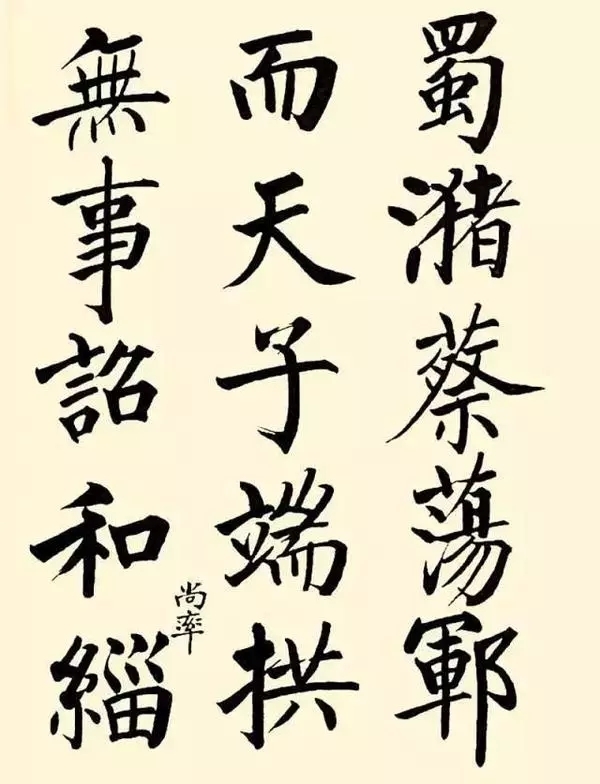 蜀潴蔡蕩鄆
而天子端拱
無事詔和緇
尚率